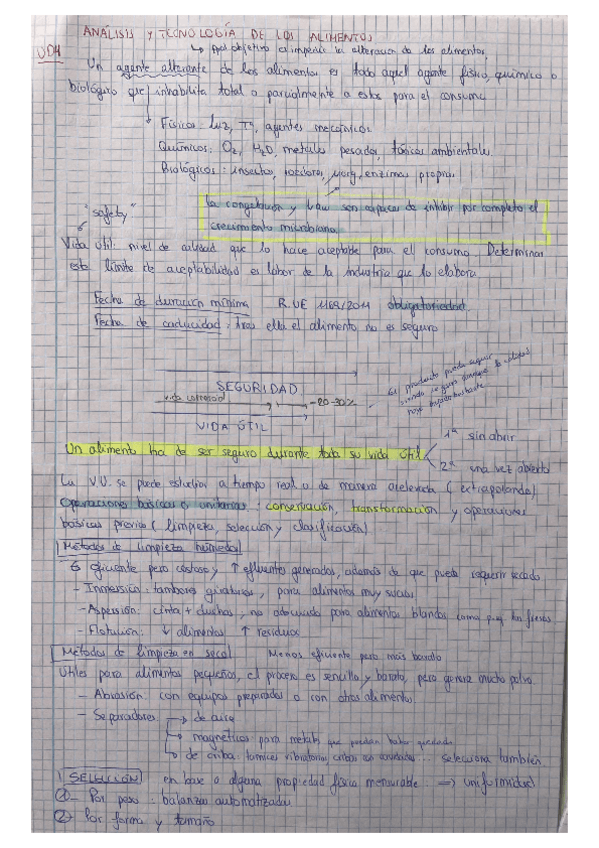 ANÁLISIS Y TECNOLOGÍA DE LOS ALIMENTOS
UD4
objetivo impedir la alteración de los alimentos
Un agente alterante de los alimentos es todo aquel agente físico, químico o
biológico que inhabilita total o parcialmente a estos para el consumo
Físicos: luz, Tª, agentes mecánicos
Químicos: O2, H2O, metales pesados, tóxicos ambientales
Biológicos: insectos, roedores, µorg, enzimas propias
la congelación y ↓aw son capaces de inhibir por completo el
crecimiento microbiano.
"safety"
Vida útil: nivel de calidad que lo hace aceptable para el consumo. Determinar
este límite de aceptabilidad es labor de la industria que lo elabora
Fecha de duración mínima R.UE 1169/2011 obligatoriedad
Fecha de caducidad: tras ella el alimento no es seguro
El producto puede seguir
siendo seguro aunque la calidad
SEGURIDAD
vida comercial
-20-30%
VIDA ÚTIL
Un alimento ha de ser seguro durante toda su vida útil
1º sin abrir
2º una vez abierto
La V.U. se puede estudiar a tiempo real o de manera acelerada (extrapolando)
Operaciones básicas o unitarias: conservación, transformación y operaciones
básicas previas (limpieza, selección y clasificación)
Métodos de limpieza húmeda
eficiente pero costoso y ↑ efluentes generados, además de que puede requerir secado
- Inmersión: tambores giratorios, para alimentos muy sucios
- Aspersión: cinta + duchas, no adecuado para alimentos blandos como p.ej. las fresas
- Flotación: ↓ alimentos ↑ residuos
Métodos de limpieza en seco Menos eficiente pero más barato
Útiles para alimentos pequeños, el proceso es sencillo y barato, pero genera mucho polvo
- Abrasión: con equipos preparados o con otros alimentos
- Separadores: → de aire
→ magnéticos para metales que puedan haber quedado
→ de criba: tamices vibratorios, cribas ... selecciona también
SELECCIÓN en base a alguna propiedad física mensurable ⇒ uniformidad
① - Por peso: balanzas automatizadas
② Por forma y tamaño